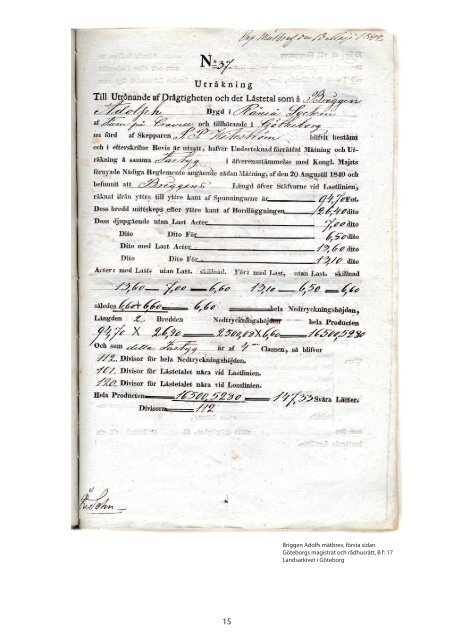 No 37.
Uträkning
Till Utrönande af Drägtigheten och det Lästetal som å Briggen
Adolph Bygd i Rönså
af på Cravell och tillhörande i Götheborg
nu förd af Skepparen N. P. blifvit bestämt
och i efterskrifne Bevis är utsatt, hafver Undertecknad förrättat Mätning och Ut-
räkning å samma Fartyg i öfverensstämmelse med Kongl. Majts
förnyade Nådiga Reglemente angående sådan Mätning, af den 20 Augusti 1840 och
befunnit att Briggens Längd öfver Stäfvarne vid Lastlinien,
räknat ifrån yttre till yttre kant af Spunningarne är 94,70 fot.
Dess bredd midtskeps efter yttre kant af Bordläggningen 26,40 dito
Dess djupgående utan Last Acter 7,00 dito
Dito Dito För 6,50 dito
Dito med Last Acter 13,60 dito
Dito Dito För 13,10 dito
Acter: med Last. utan Last. skillnad. För: med Last, utan Last. skillnad
13,60 — 7,00 — 6,60 13,10 — 6,50 — 6,60
således 6,60 + 6,60 6,60 hela Nedtryckningshöjden,
Längden 2. Bredden Nedtryckningshöjden hela Producten
94,70 X 26,40 2500,08 X 6,60 16500,5280
Och som detta Fartyg är af 4de Classen, så blifver
112. Divisor för hela Nedtryckningshöjden.
101. Divisor för Lästetalet nära vid Lastlinien.
120. Divisor för Lästetalet nära vid Losslinien.
Hela Producten 16500,5280 147,33 Svåra Läster.
Divisorn 112
Briggen Adolfs mätbrev, första sidan
Göteborgs magistrat och rådhusrätt, B f: 17
Landsarkivet i Göteborg
15